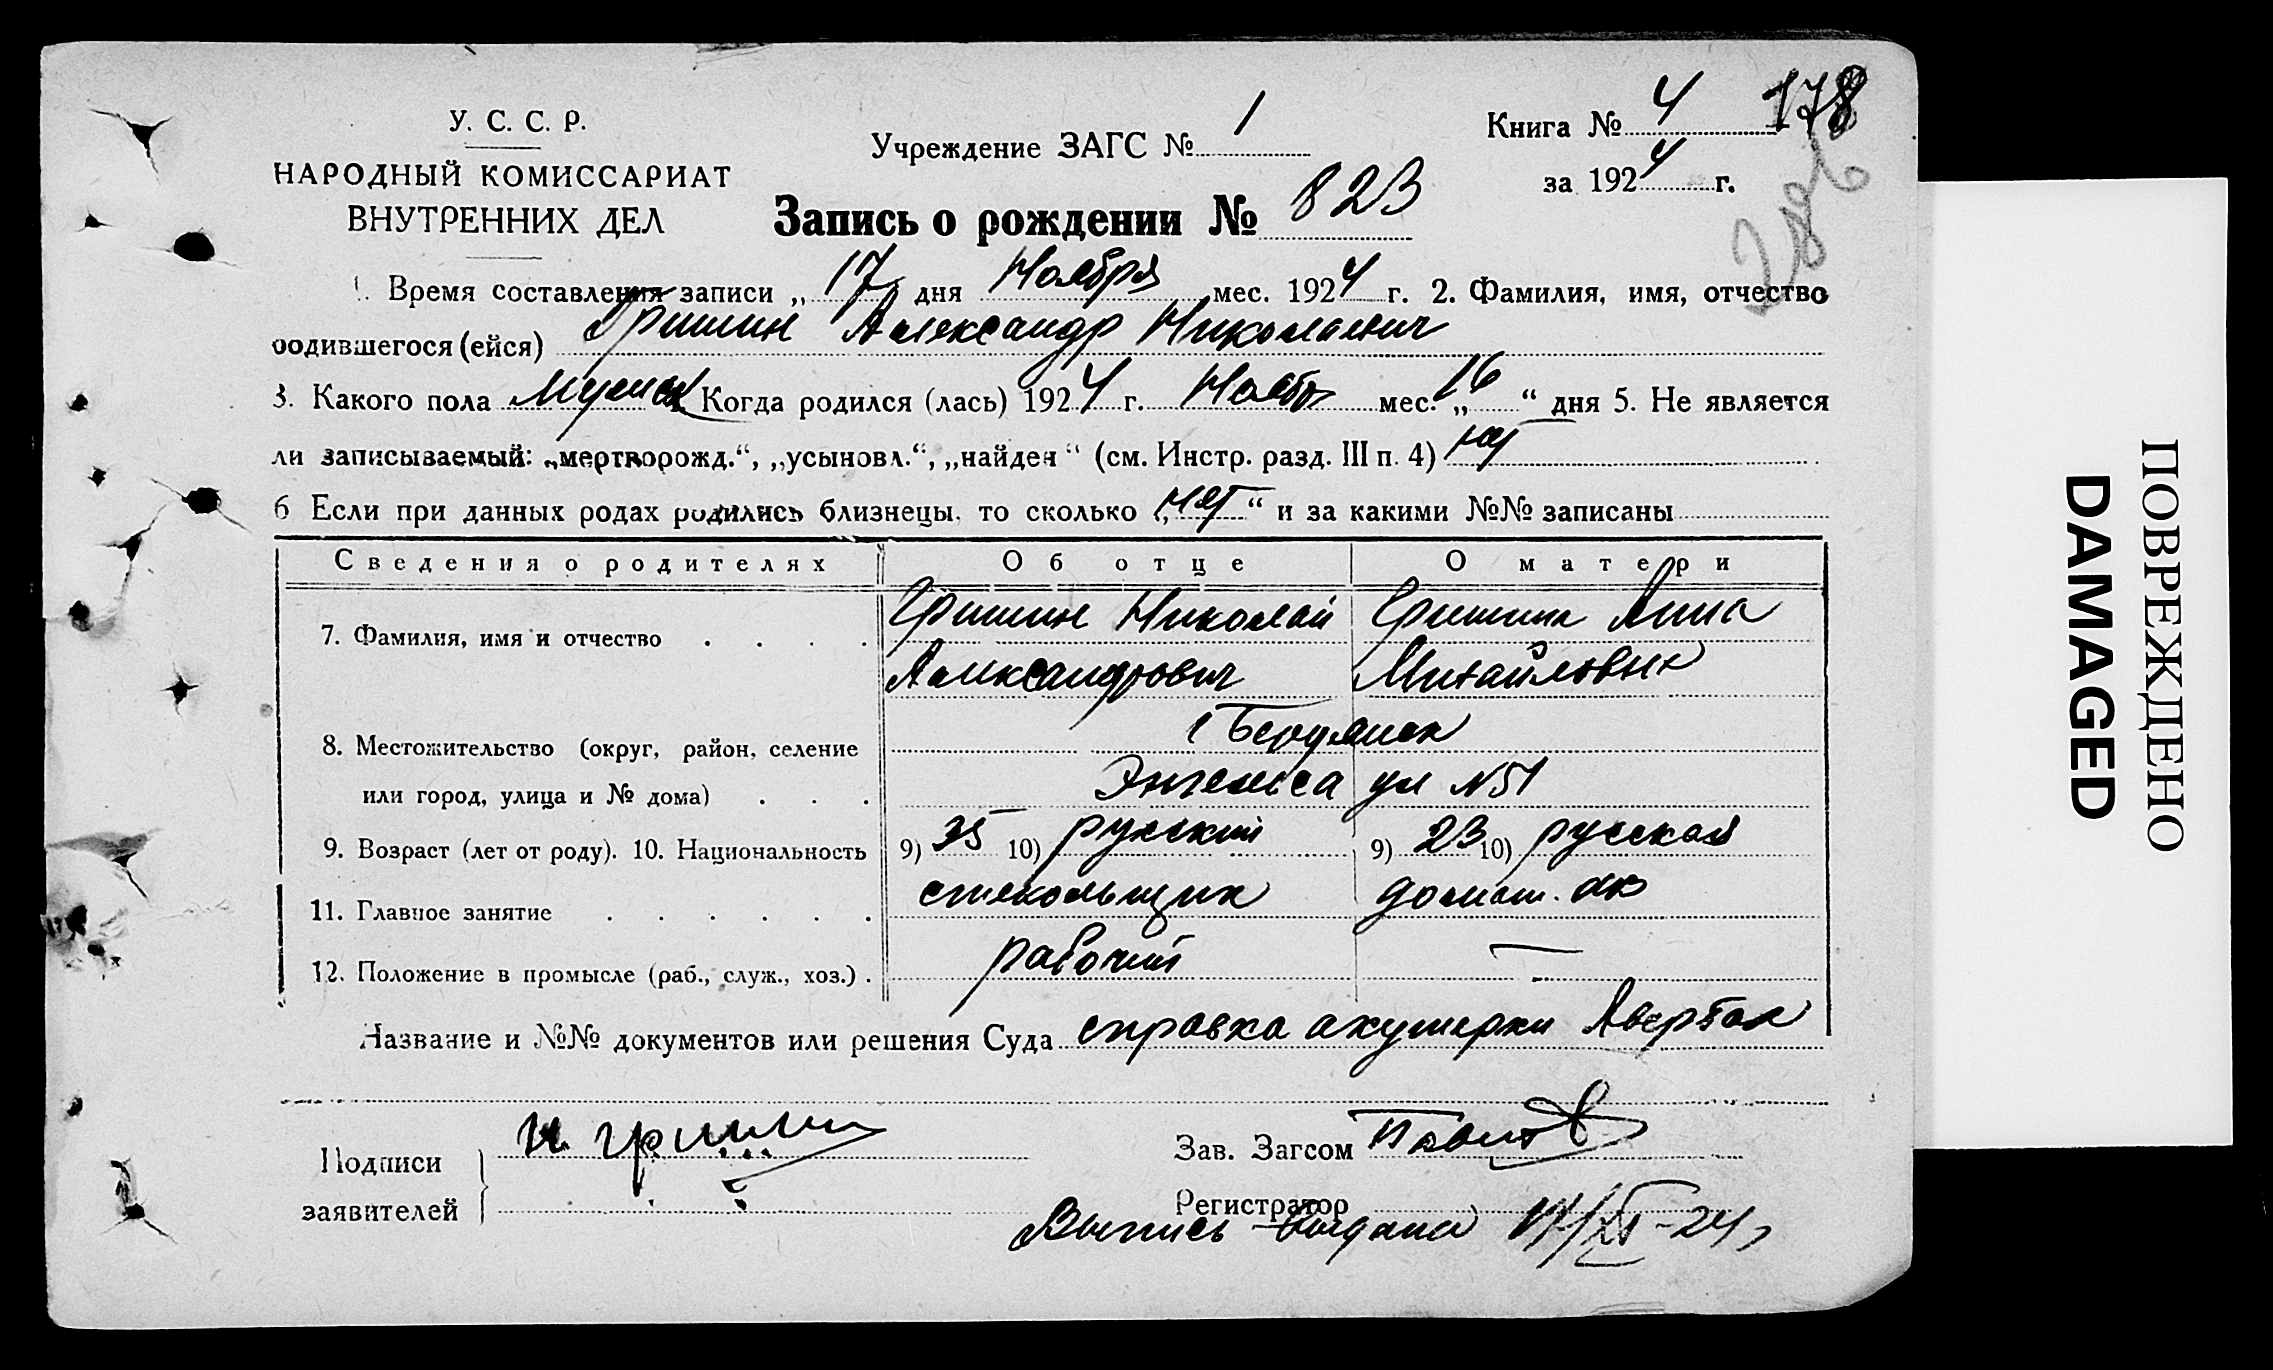 178
У. С. С. Р.
Учреждение ЗАГС № 1
Книга № 4
НАРОДНЫЙ КОМИССАРИАТ
ВНУТРЕННИХ ДЕЛ
за 1924 г.
Запись о рождении № 823
1. Время составления записи „ 17 дня Ноября мес. 1924 г. 2. Фамилия, имя, отчество
родившегося (ейся) Гришин Александр Николаевич
3. Какого пола мужск 4. Когда родился (лась) 1924 г. Нояб мес. „16“ дня 5. Не является
ли записываемый: „мертворожд.“, „усыновл.“, „найден“ (см. Инстр. разд. III п. 4) нет
6 Если при данных родах родились близнецы, то сколько „нет“ и за какими №№ записаны
Сведения о родителях Об отце О матери
7. Фамилия, имя и отчество . . . . Гришин Николай Гришин Анна
Александрович Михайловн
8. Местожительство (округ, район, селение г Бердянск
или город, улица и № дома) . . . Энгельса ул №51
9. Возраст (лет от роду). 10. Национальность 9) 35 10) русский 9) 23 10) русская
11. Главное занятие . . . . . . стекольщик домаш. хоз
12. Положение в промысле (раб., служ., хоз.) . рабочий —
Название и №№ документов или решения Суда справка акушерки
Подписи заявителей Н Гришин
Зав. Загсом
Регистратор
Выпись выдана 17/XI-24 г
ПОВРЕЖДЕНО
DAMAGED